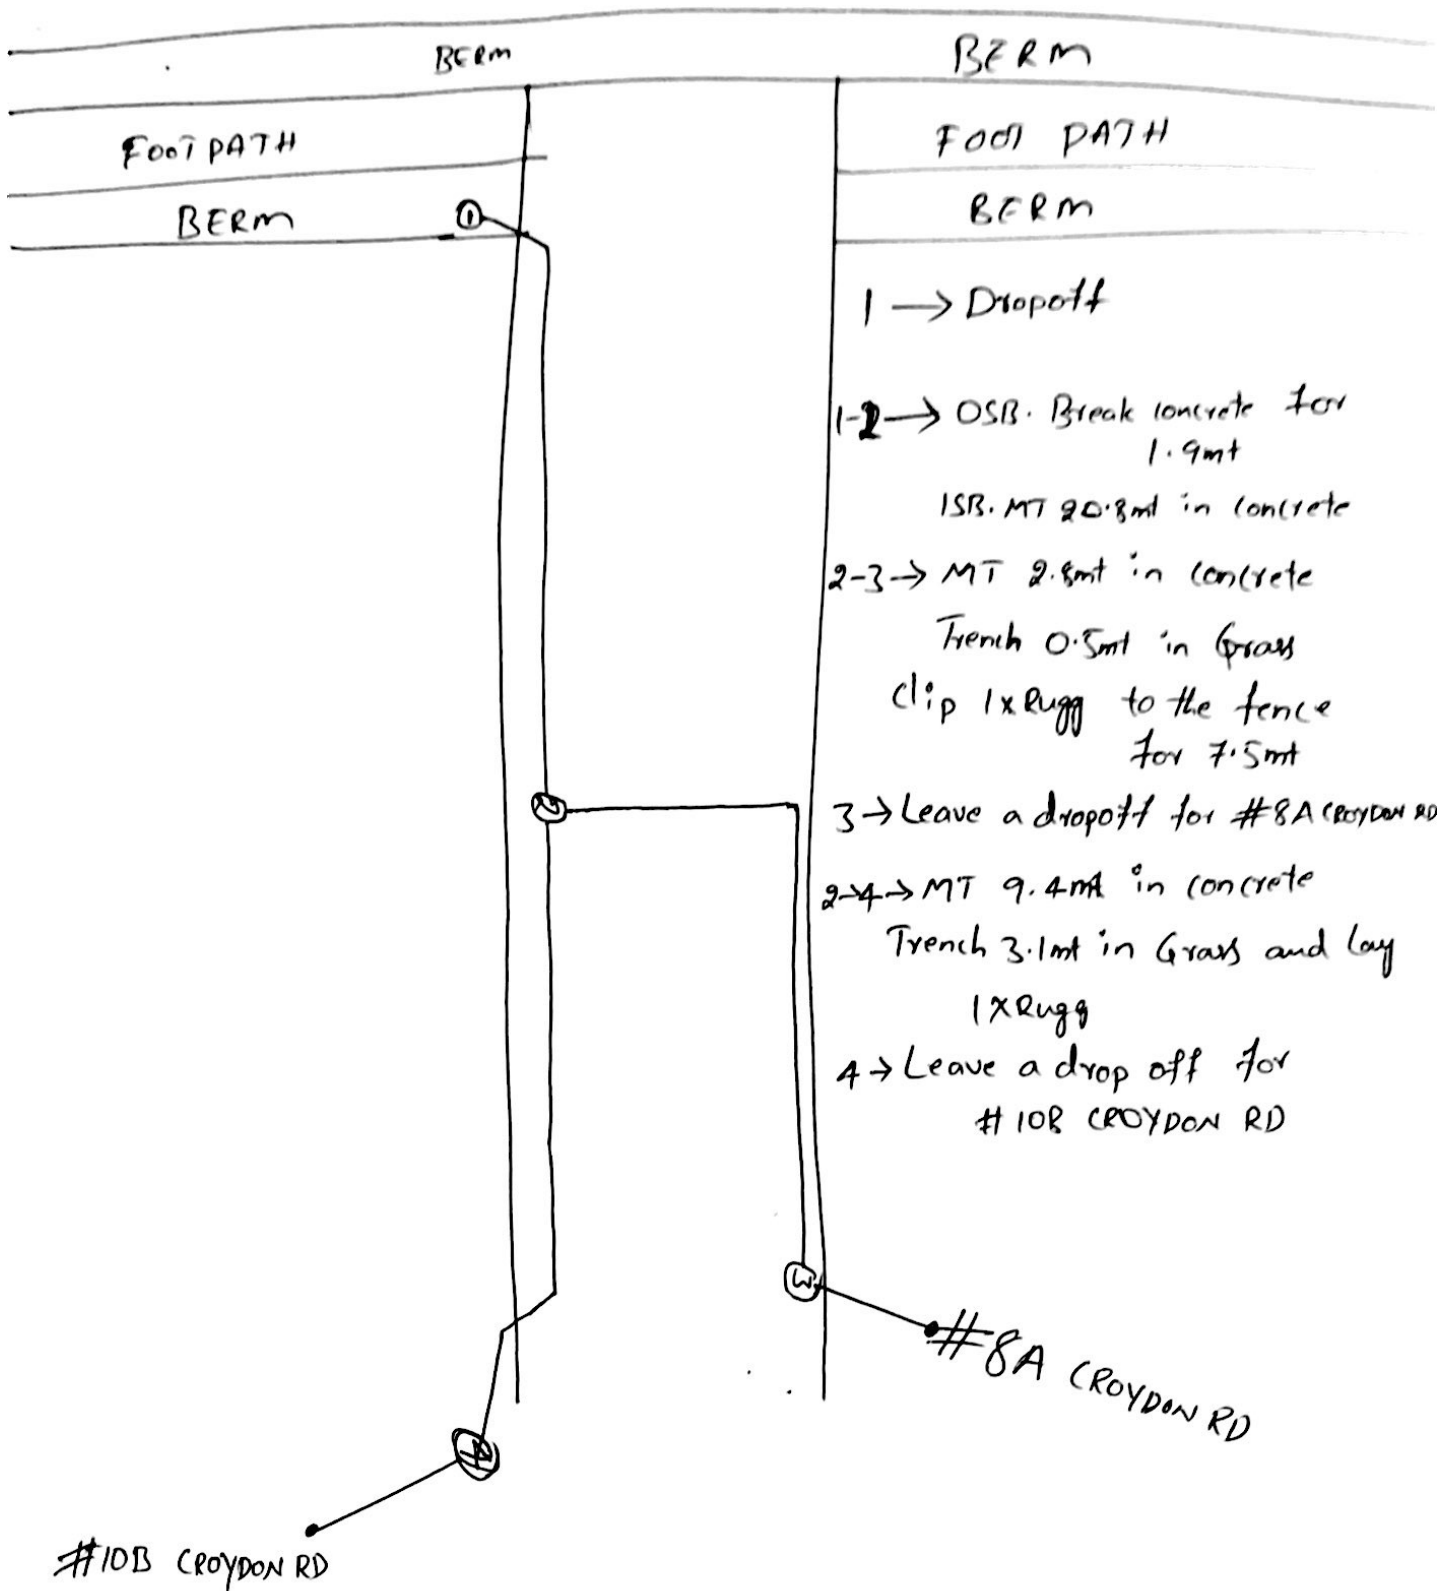 BERM
BERM
FOOTPATH
FOOT PATH
BERM
①
BERM
1 → Dropoff
1-2 → OSB. Break concrete for
1.9mt
ISB. MT 20.8mt in concrete
2-3 → MT 2.8mt in concrete
Trench 0.5mt in Grass
Clip 1xRugg to the fence
for 7.5mt
2
3 → Leave a dropoff for #8A CROYDON RD
2-4 → MT 9.4mt in concrete
Trench 3.1mt in Grass and Lay
1XRugg
4 → Leave a drop off for
#10B CROYDON RD
3
#8A CROYDON RD
4
#10B CROYDON RD